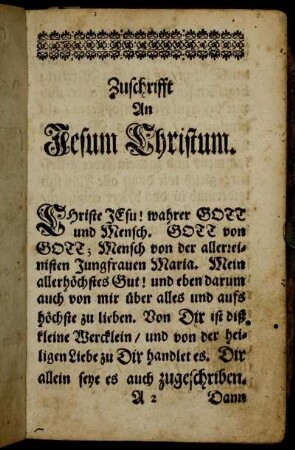 Zuschrifft
An
Jesum Christum.
CHriste JEsu! wahrer GOTT
und Mensch. GOTT von
GOTT; Mensch von der allerrei-
nisten Jungfrauen Maria. Mein
allerhöchstes Gut! und eben darum
auch von mir über alles und aufs
höchste zu lieben. Von Dir ist diß
kleine Wercklein / und von der hei-
ligen Liebe zu Dir handlet es. Dir
allein seye es auch zugeschriben.
A 2 Dann